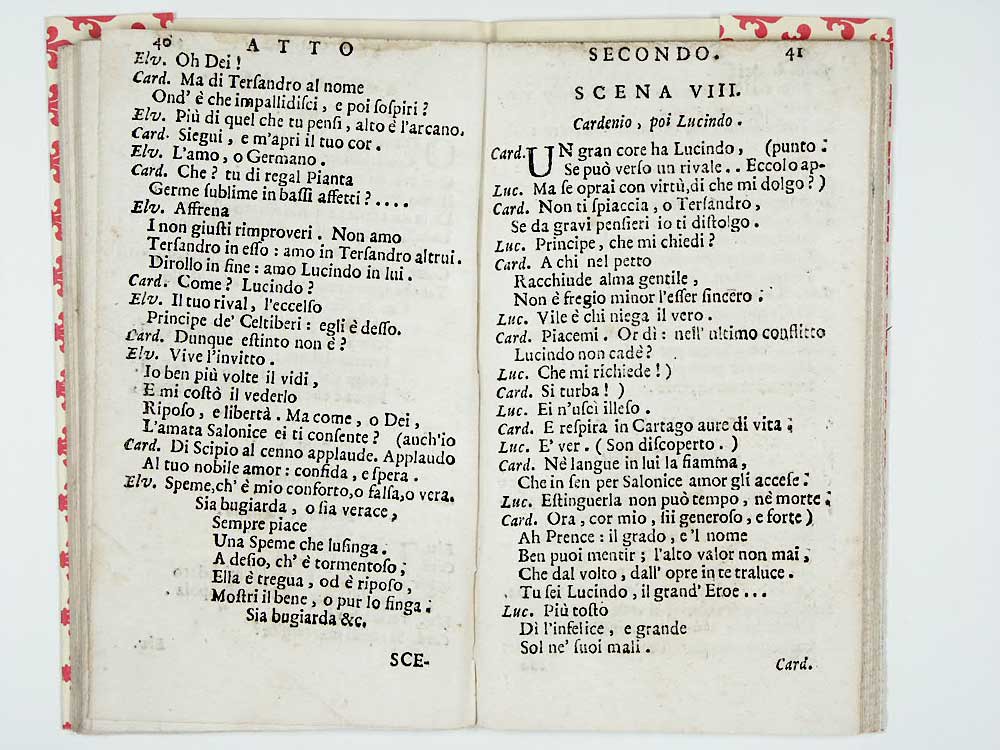 40 ATTO
Elv. Oh Dei !
Card. Ma di Terſandro al nome
Ond' è che impallidiſci, e poi ſoſpiri ?
Elv. Più di quel che tu penſi, alto è l'arcano.
Card. Siegui, e m'apri il tuo cor.
Elv. L'amo, o Germano.
Card. Che ? tu di regal Pianta
Germe ſublime in baſſi affetti ? ....
Elv. Affrena
I non giuſti rimproveri. Non amo
Terſandro in eſſo : amo in Terſandro altrui.
Dirollo in fine : amo Lucindo in lui.
Card. Come ? Lucindo ?
Elv. Il tuo rival, l'eccelſo
Principe de' Celtiberi : egli è deſſo.
Card. Dunque eſtinto non è ?
Elv. Vive l'invitto.
Io ben più volte il vidi,
E mi coſtò il vederlo
Ripoſo, e libertà. Ma come, o Dei,
L'amata Salonice ei ti conſente ? (anch'io
Card. Di Scipio al cenno applaude. Applaudo
Al tuo nobile amor : confida, e ſpera.
Elv. Speme, ch' è mio conforto, o falſa, o vera.
Sia bugiarda, o ſia verace,
Sempre piace
Una Speme che luſinga.
A deſio, ch' è tormentoſo,
Ella è tregua, od è ripoſo,
Moſtri il bene, o pur lo finga.
Sia bugiarda &c.
SCE-
SECONDO. 41
SCENA VIII.
Cardenio, poi Lucindo.
Card. UN gran core ha Lucindo, (punto.
Se può verſo un rivale.. Eccolo ap-
Luc. Ma ſe oprai con virtù, di che mi dolgo ? )
Card. Non ti ſpiaccia, o Terſandro,
Se da gravi penſieri io ti diſtolgo.
Luc. Principe, che mi chiedi ?
Card. A chi nel petto
Racchiude alma gentile,
Non è fregio minor l'eſſer ſincero.
Luc. Vile è chi niega il vero.
Card. Piacemi. Or di : nell' ultimo conflitto
Lucindo non cadè ?
Luc. Che mi richiede ! )
Card. Si turba ! )
Luc. Ei n'uſcì illeſo.
Card. E reſpira in Cartago aure di vita ;
Luc. E' ver. ( Son diſcoperto. )
Card. Nè langue in lui la fiamma,
Che in ſen per Salonice amor gli acceſe.
Luc. Eſtinguerla non può tempo, nè morte.
Card. Ora, cor mio, ſii generoſo, e forte )
Ah Prence : il grado, e 'l nome
Ben puoi mentir ; l'alto valor non mai,
Che dal volto, dall' opre in te traluce.
Tu ſei Lucindo, il grand' Eroe ...
Luc. Più toſto
Dì l'infelice, e grande
Sol ne' ſuoi mali.
Card.